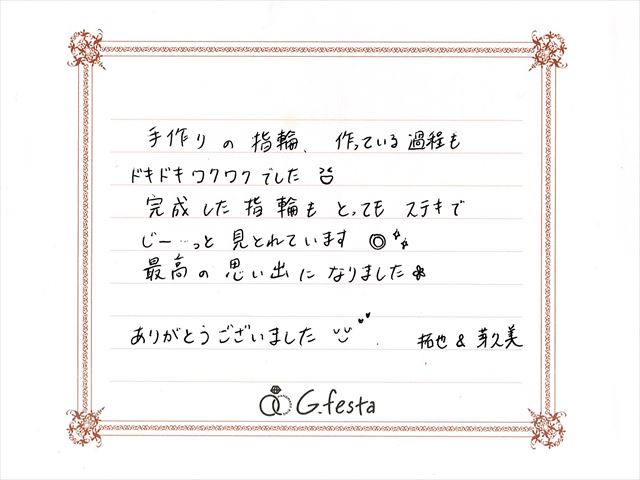 手作りの指輪、作っている過程も
ドキドキワクワクでした
完成した指輪もとってもステキで
じー…っと見とれています◎
最高の思い出になりました
ありがとうございました
拓也&芽久美
G.festa